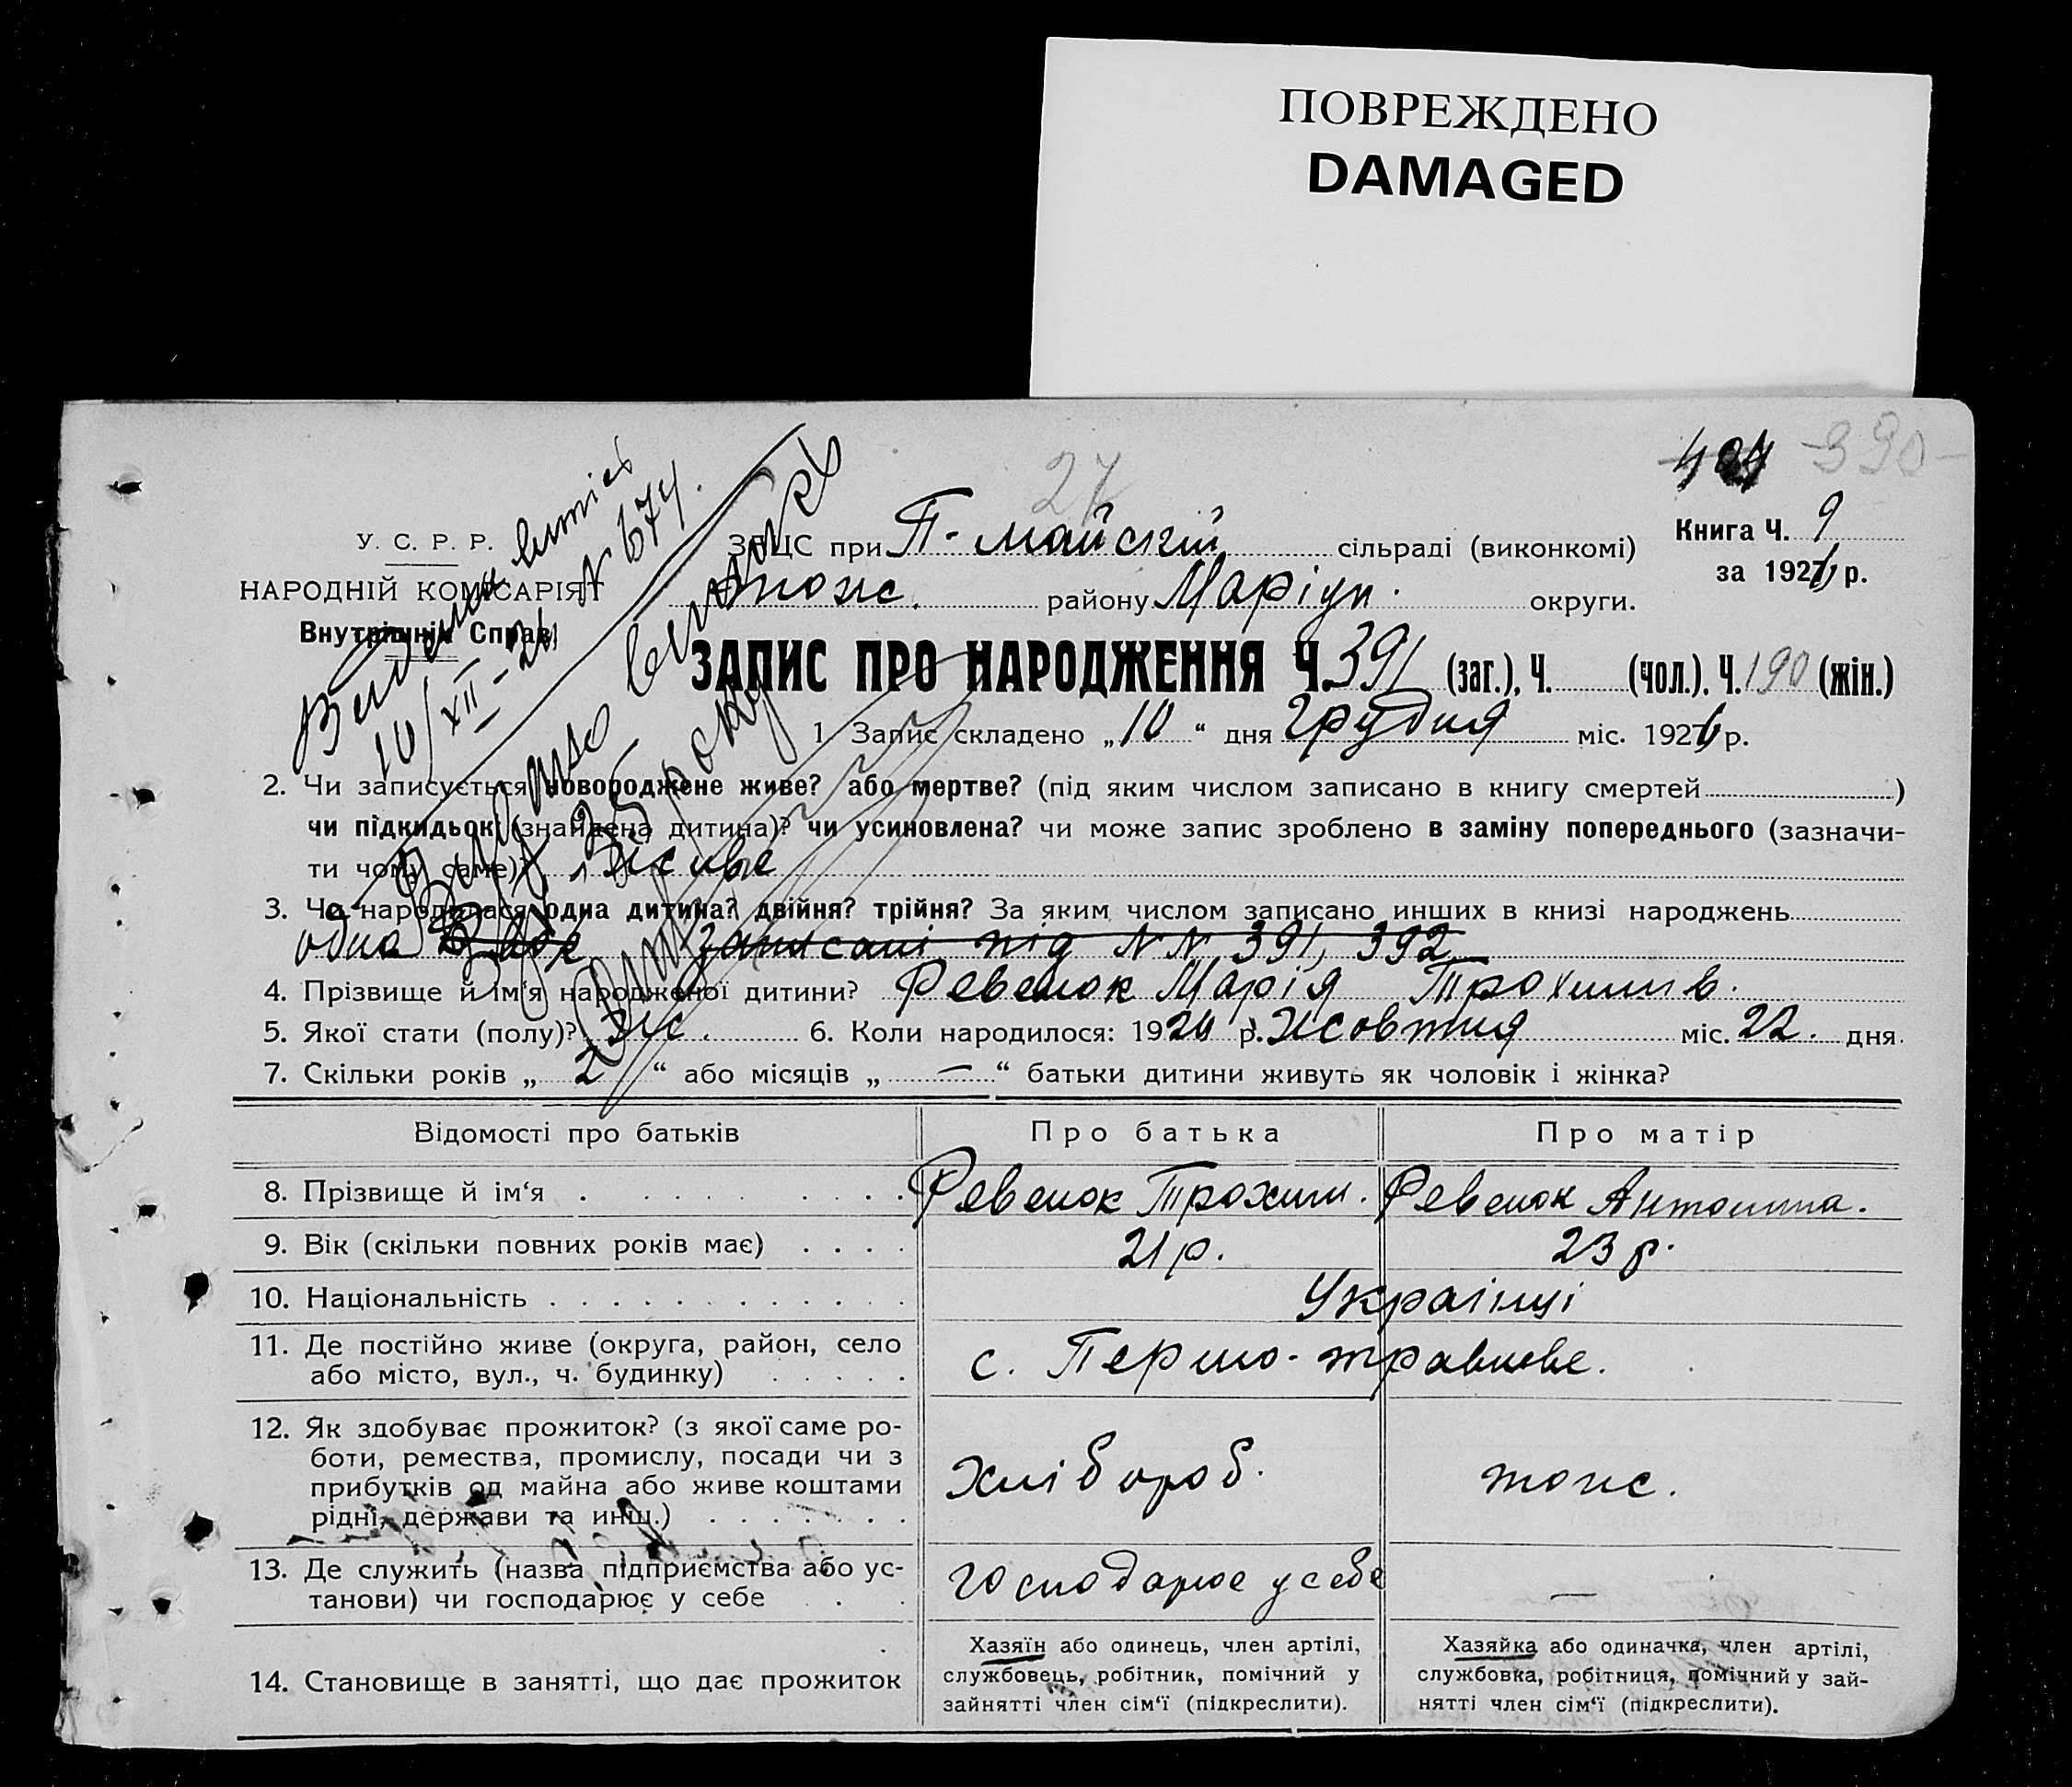 ПОВРЕЖДЕНО
DAMAGED
404 390
27
У. С. Р. Р.
НАРОДНІЙ КОМІСАРІЯТ
Внутрішніх Справ
№ 674.
10/XII-26
Видано
ЗАЦС при П-Майскій сільраді (виконкомі)
тонс. району Маріуп. округи.
Книга Ч. 9
за 1926 р.
ЗАПИС ПРО НАРОДЖЕННЯ Ч. 391 (заг.), Ч. (чол.), Ч. 190 (жін.)
1 Запис складено „10“ дня Грудня міс. 1926 р.
2. Чи записується новороджене живе? або мертве? (під яким числом записано в книгу смертей )
чи підкидьок (знайдена дитина)? чи усиновлена? чи може запис зроблено в заміну попереднього (зазначи-
ти чому саме)? живе
3. Чи народилася одна дитина? двійня? трійня? За яким числом записано инших в книзі народжень
одна записані під №№ 391, 392
4. Прізвище й ім‘я народженої дитини? Ревенок Марія Трохимів.
5. Якої стати (полу)? Жіс. 6. Коли народилося: 1926 р. Жовтня міс. 22. дня
7. Скільки років „ 2 “ або місяців „ — “ батьки дитини живуть як чоловік і жінка?
Відомості про батьків Про батька Про матір
8. Прізвище й ім‘я Ревенок Трохим. Ревенок Антонина.
9. Вік (скільки повних років має) 21 р. 23 р.
10. Національність Українці
11. Де постійно живе (округа, район, село
або місто, вул., ч. будинку) с. Першо-травневе.
12. Як здобуває прожиток? (з якої саме ро-
боти, ремества, промислу, посади чи з
прибутків од майна або живе коштами
рідні, держави та инш.) хлібороб. тонс.
13. Де служить (назва підприємства або ус-
танови) чи господарює у себе господарює у себе —
14. Становище в занятті, що дає прожиток
Хазяїн або одинець, член артілі,
службовець, робітник, помічний у
зайнятті член сім‘ї (підкреслити).
Хазяйка або одиначка, член артілі,
службовка, робітниця, помічний у зай-
нятті член сім‘ї (підкреслити).